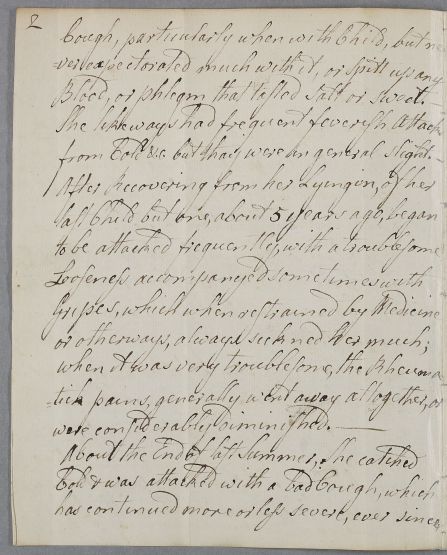 2
Cough, particularly when with Child, but ne
=ver expectorated much with it, or Spitt up any
Blood, or phlegm that tasted Salt or Sweet.
She likeways had frequent feverish Attacks
from Cold &c but thay were in general slight.
After Recovering from her Lyingin, of her
last Child but one, about 5 years ago, began
to be attacked frequently, with a troublesome
Looseness accompanyed sometimes with
Gripes, which when restrained by Medicine
or otherways, always sickned her much;
when it was very troublesome, the Rheuma
=tick pains, generally went away altogether, or
were considerably Diminished. —
About the End of last Summer, She catched
Cold & was attacked with a Bad Cough, which
has continued more or less severe, ever since,